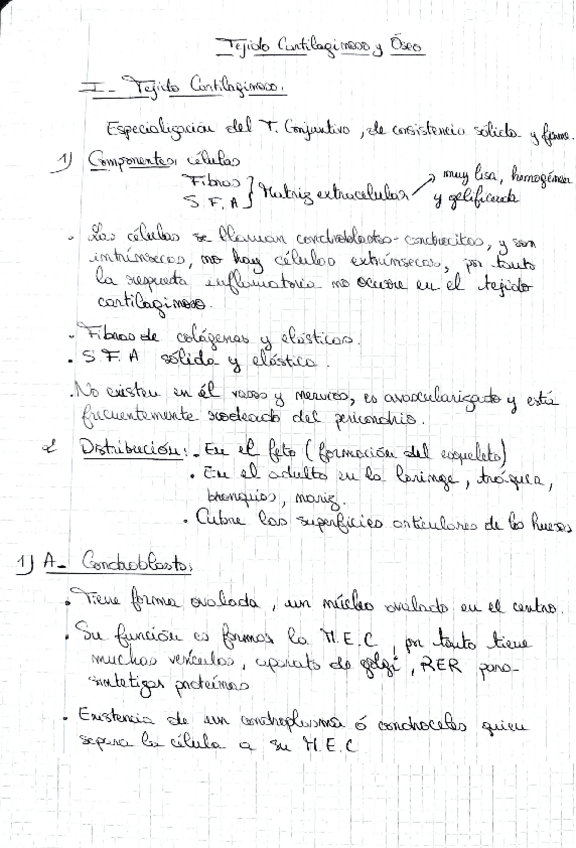 Tejido Cartilaginoso y Óseo
I- Tejido Cartilaginoso.
Especialización del T. Conjuntivo, de consistencia sólida y firme.
1) Componentes, células
Fibras } Matriz extracelular → muy lisa, homogénea
S. F. A } y gelificada
. Las células se llaman condroblastos-condrocitos, y son
intrínsecas, no hay células extrínsecas, por tanto
la respuesta inflamatoria no ocurre en el tejido
cartilaginoso.
. Fibras de colágenas y elásticas.
. S. F. A sólida y elástica.
. No existen en él vasos y nervios, es avascularizado y está
frecuentemente rodeado del pericondrio.
2 Distribución: . En el feto (formación del esqueleto)
. En el adulto en la laringe, tráquea,
bronquios, nariz.
. Cubre las superficies articulares de los huesos
1) A- Condroblastos
. Tiene forma ovalada, un núcleo ovalado en el centro.
. Su función es formar la M.E.C, por tanto tiene
muchas vesículas, aparato de golgi, RER para
sintetizar proteínas
. Existencia de un condroplasma ó condroceles quien
separa la célula a su M.E.C